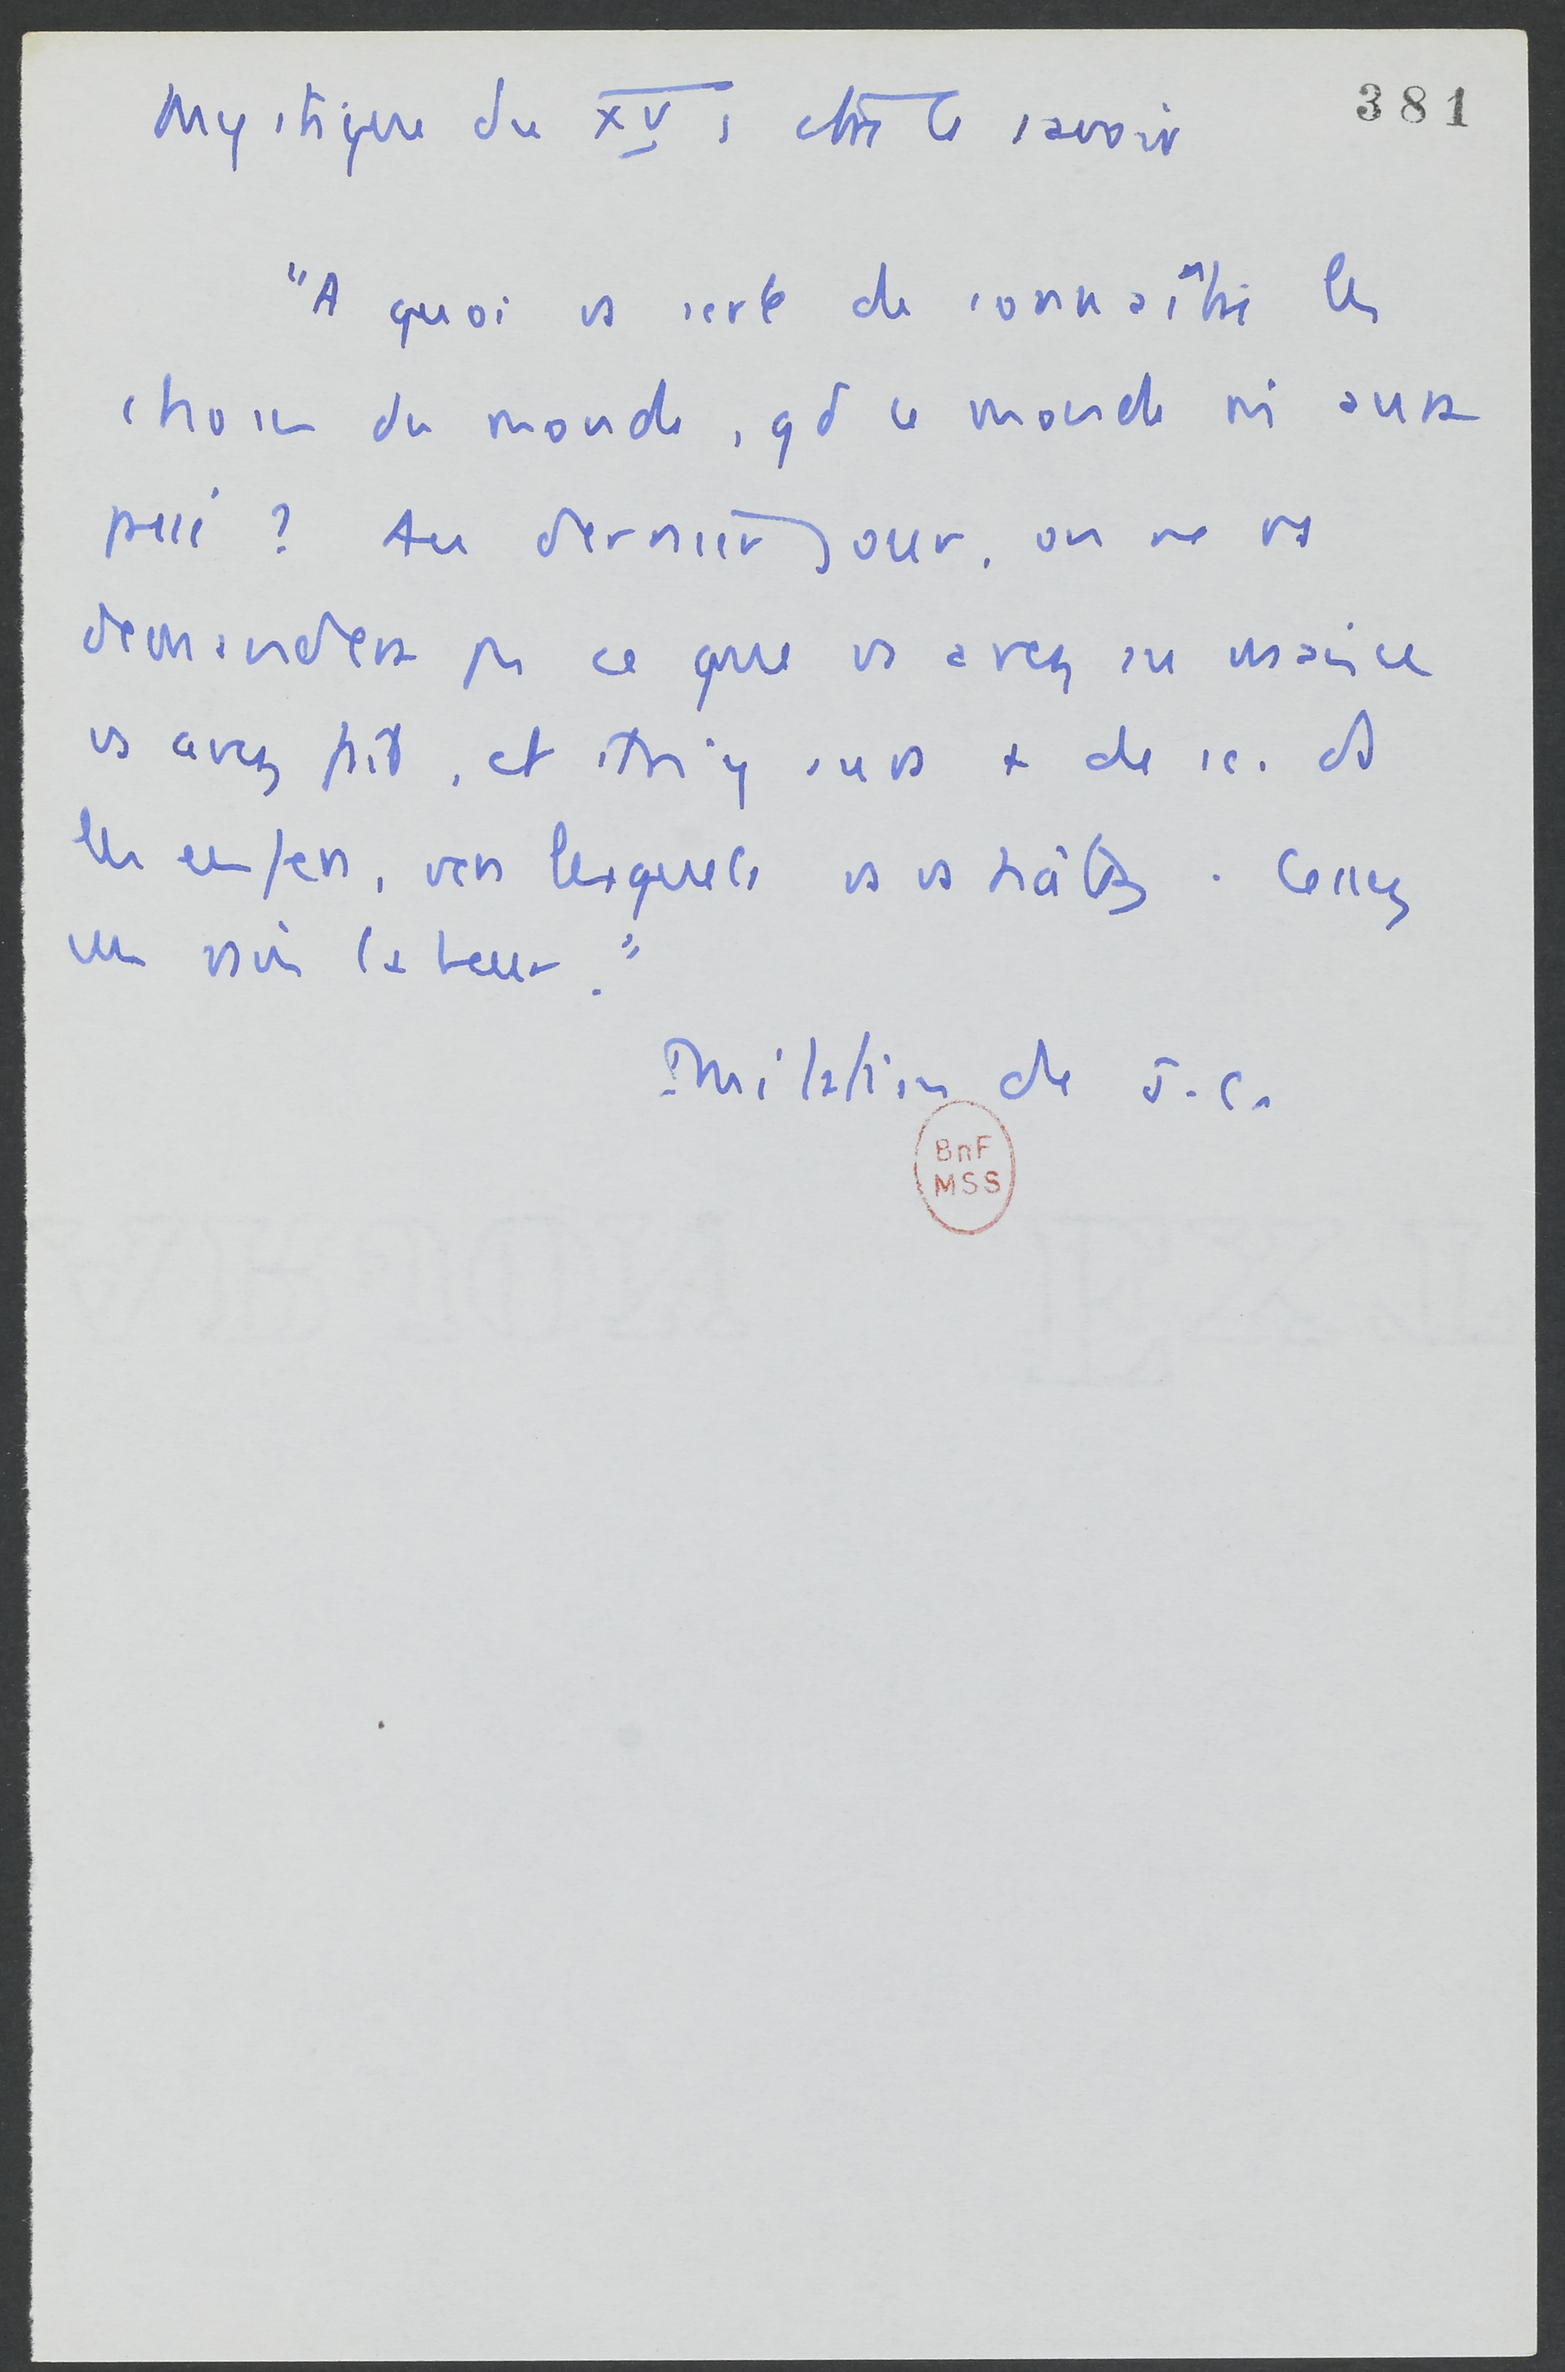 Mystique du XV s ctre le savoir
381
"A quoi vs sert de connaître les
choses du monde, qd ce monde ni aura
passé ? Au dernier jour, on ne vs
demandera pas ce que vs avez su mais ce
vs avez fait, et il n'y aura + de sc. ds
les enfers, vers lesquels vs vs hâtez. Cessez
un vain labeur."
Imitation de J. C.
BnF
MSS